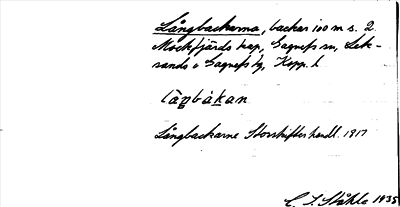 Långbackarna, backar 100 m s. 2
Mockfjärds kap, Gagnefs sn, Lek-
sands o Gagnefs tg, Kopp. l.
làŋbákan
Långbackarne Storskifteshandl. 1917
C. I. Ståhle 1935